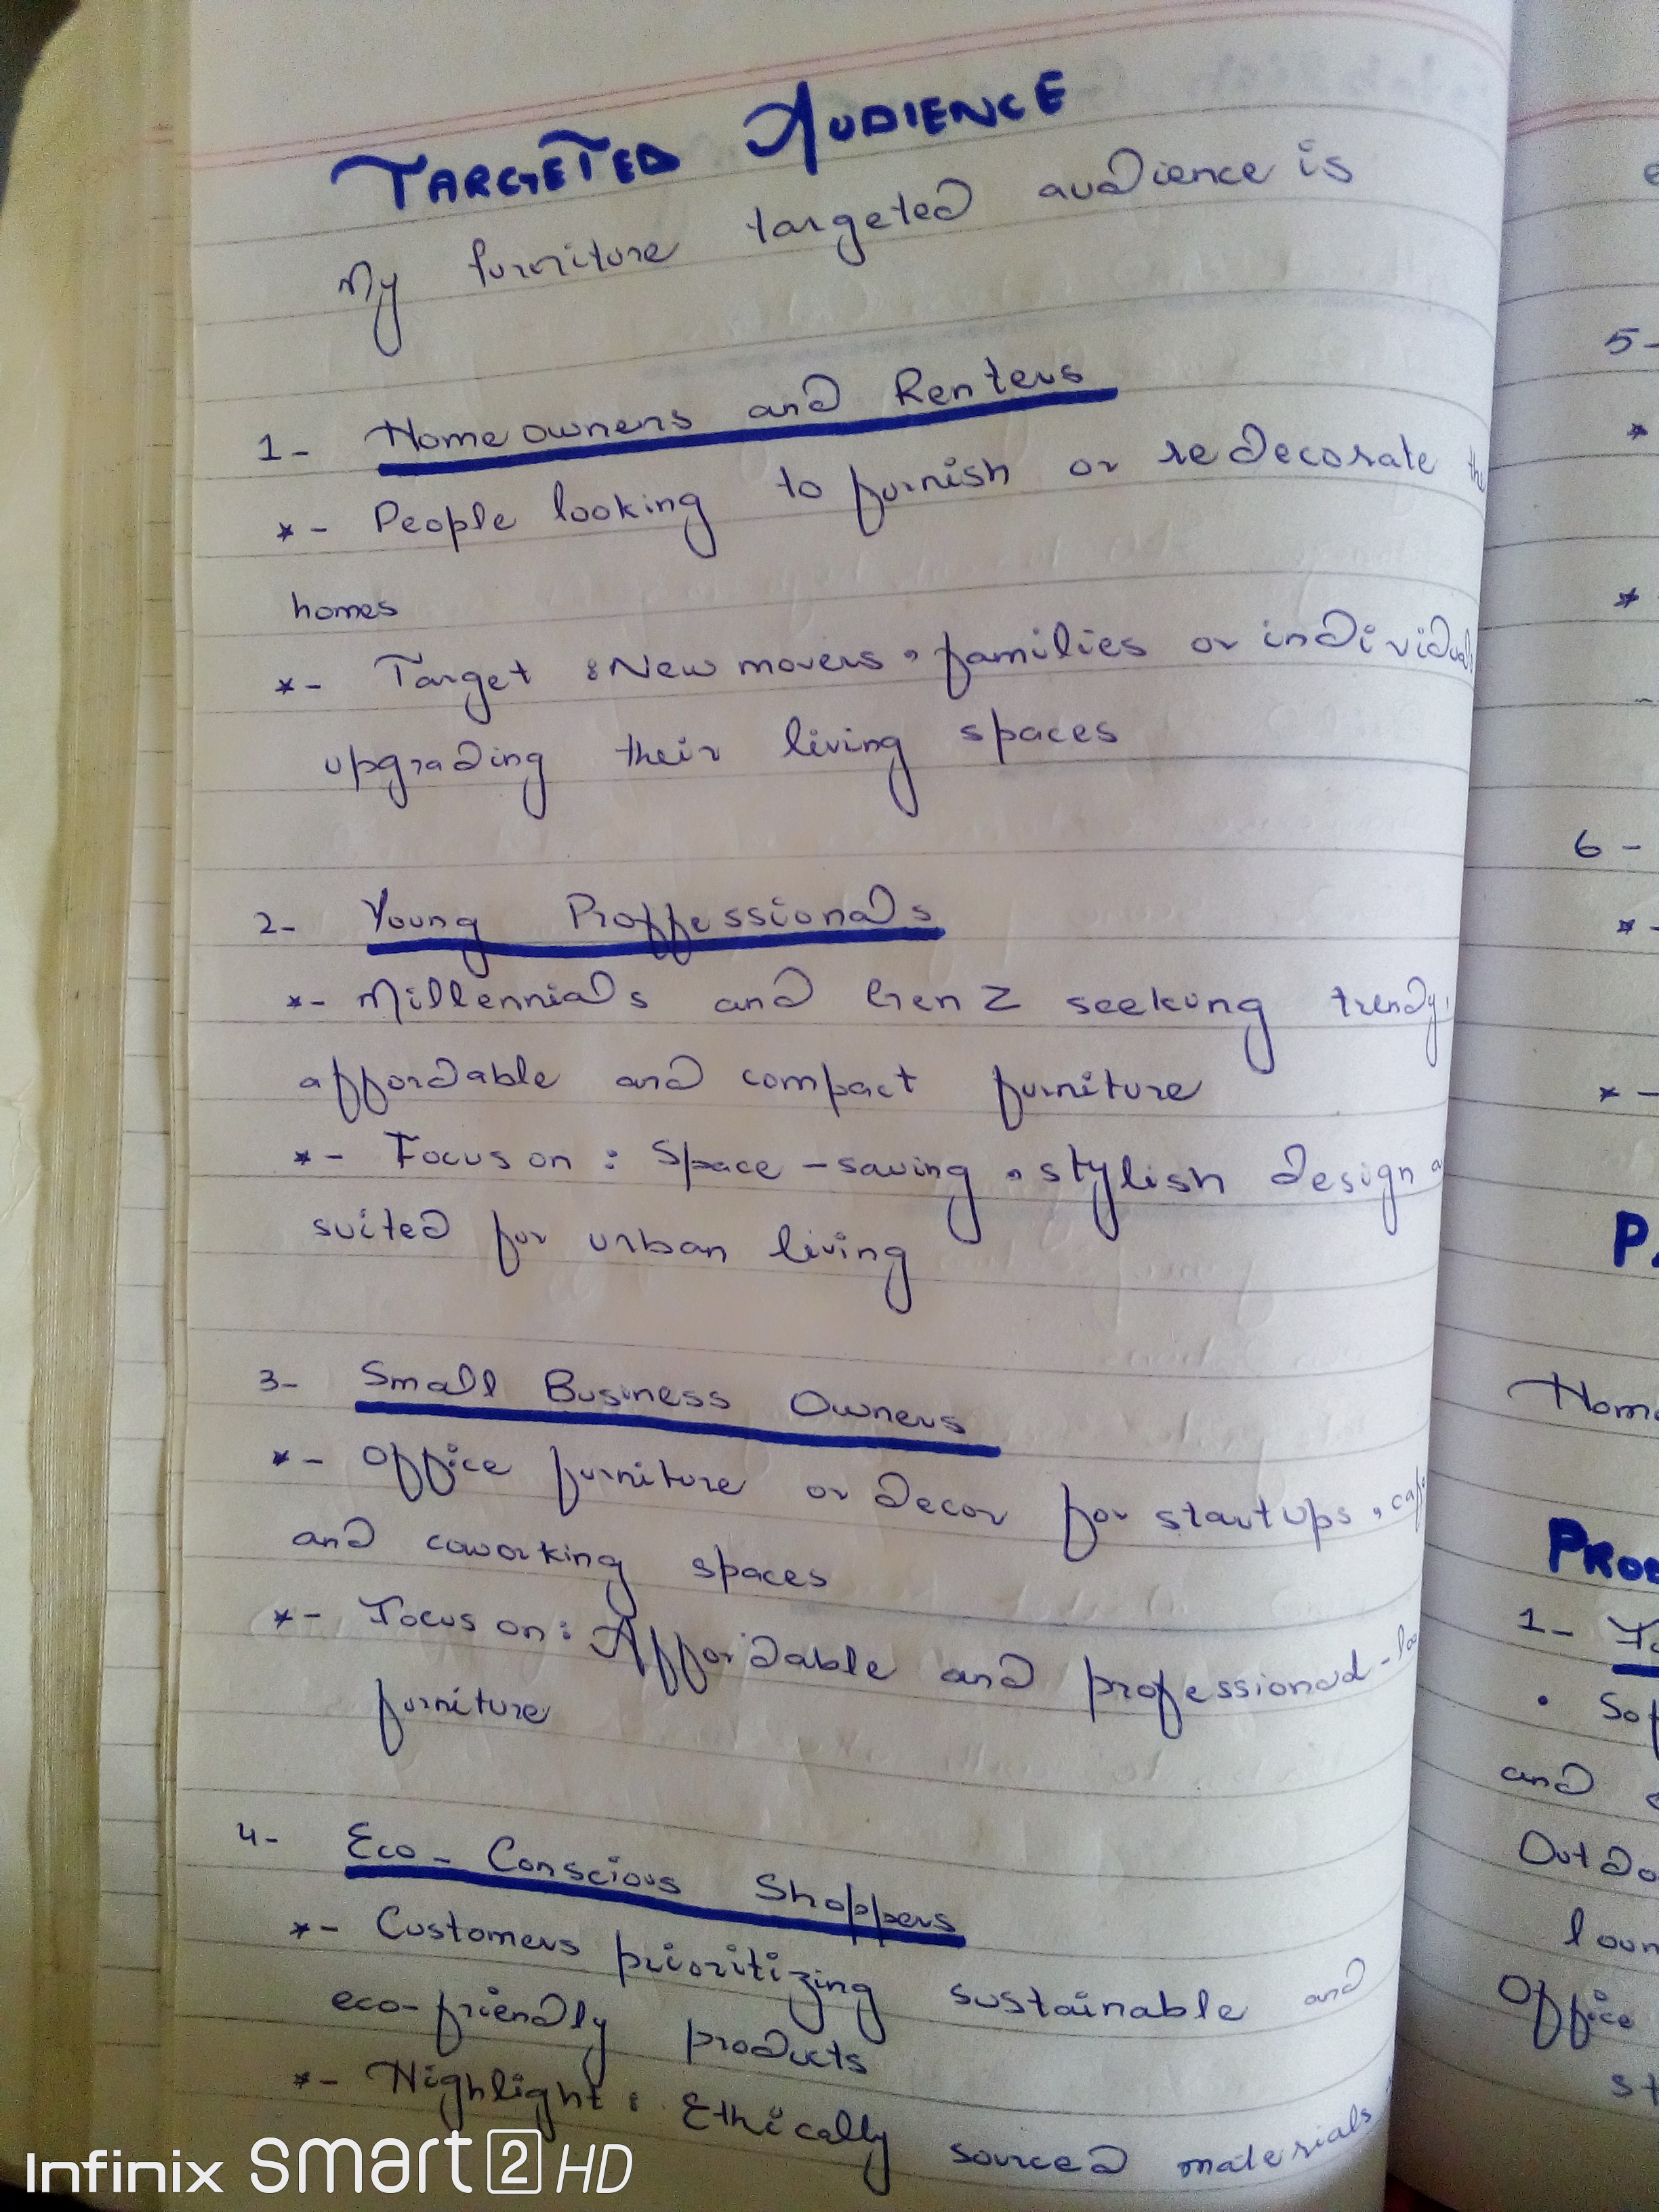 TARGETED AUDIENCE
My furniture targeted audience is
1- Homeowners and Renters
*- People looking to furnish or redecorate
homes
*- Target : New movers, families or individuals
upgrading their living spaces
2- Young Proffessionals
*- Millennials and Gen Z seeking trendy,
affordable and compact furniture
*- Focus on : Space-saving, stylish design
suited for urban living
3- Small Business Owners
*- Office furniture or decor for startups,
and coworking spaces
*- Focus on : Affordable and professional-
furniture
4- Eco-Conscious Shoppers
*- Customers prioritizing sustainable and
eco-friendly products
*- Highlight : Ethically sourced materials
5-
*
*
6-
*-
*-
1-
and
Office
Infinix smart 2 HD